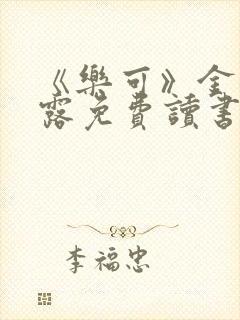 《樂可》金
露免費讀書
李福忠